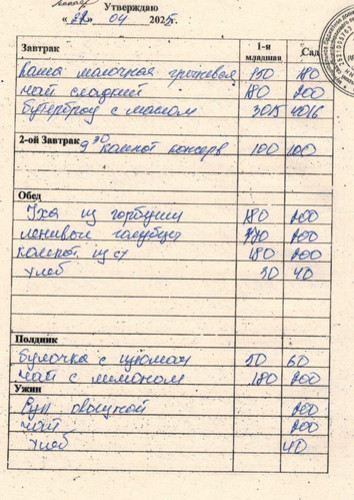 Утверждаю
« 22 » 04 2025г.
Завтрак 1-я младшая Сад
Каша молочная гречневая 150 180
чай сладкий 180 200
бутерброд с маслом 30/5 40/6
2-ой Завтрак 9 30 компот консерв 100 100
Обед
Уха из горбуши 180 200
ленивые голубцы 200
компот из с/ф 180 200
хлеб 30 40
Полдник
булочка с изюмом 50 60
чай с лимоном 180 200
Ужин
Суп овощной 200
чай 200
хлеб 40